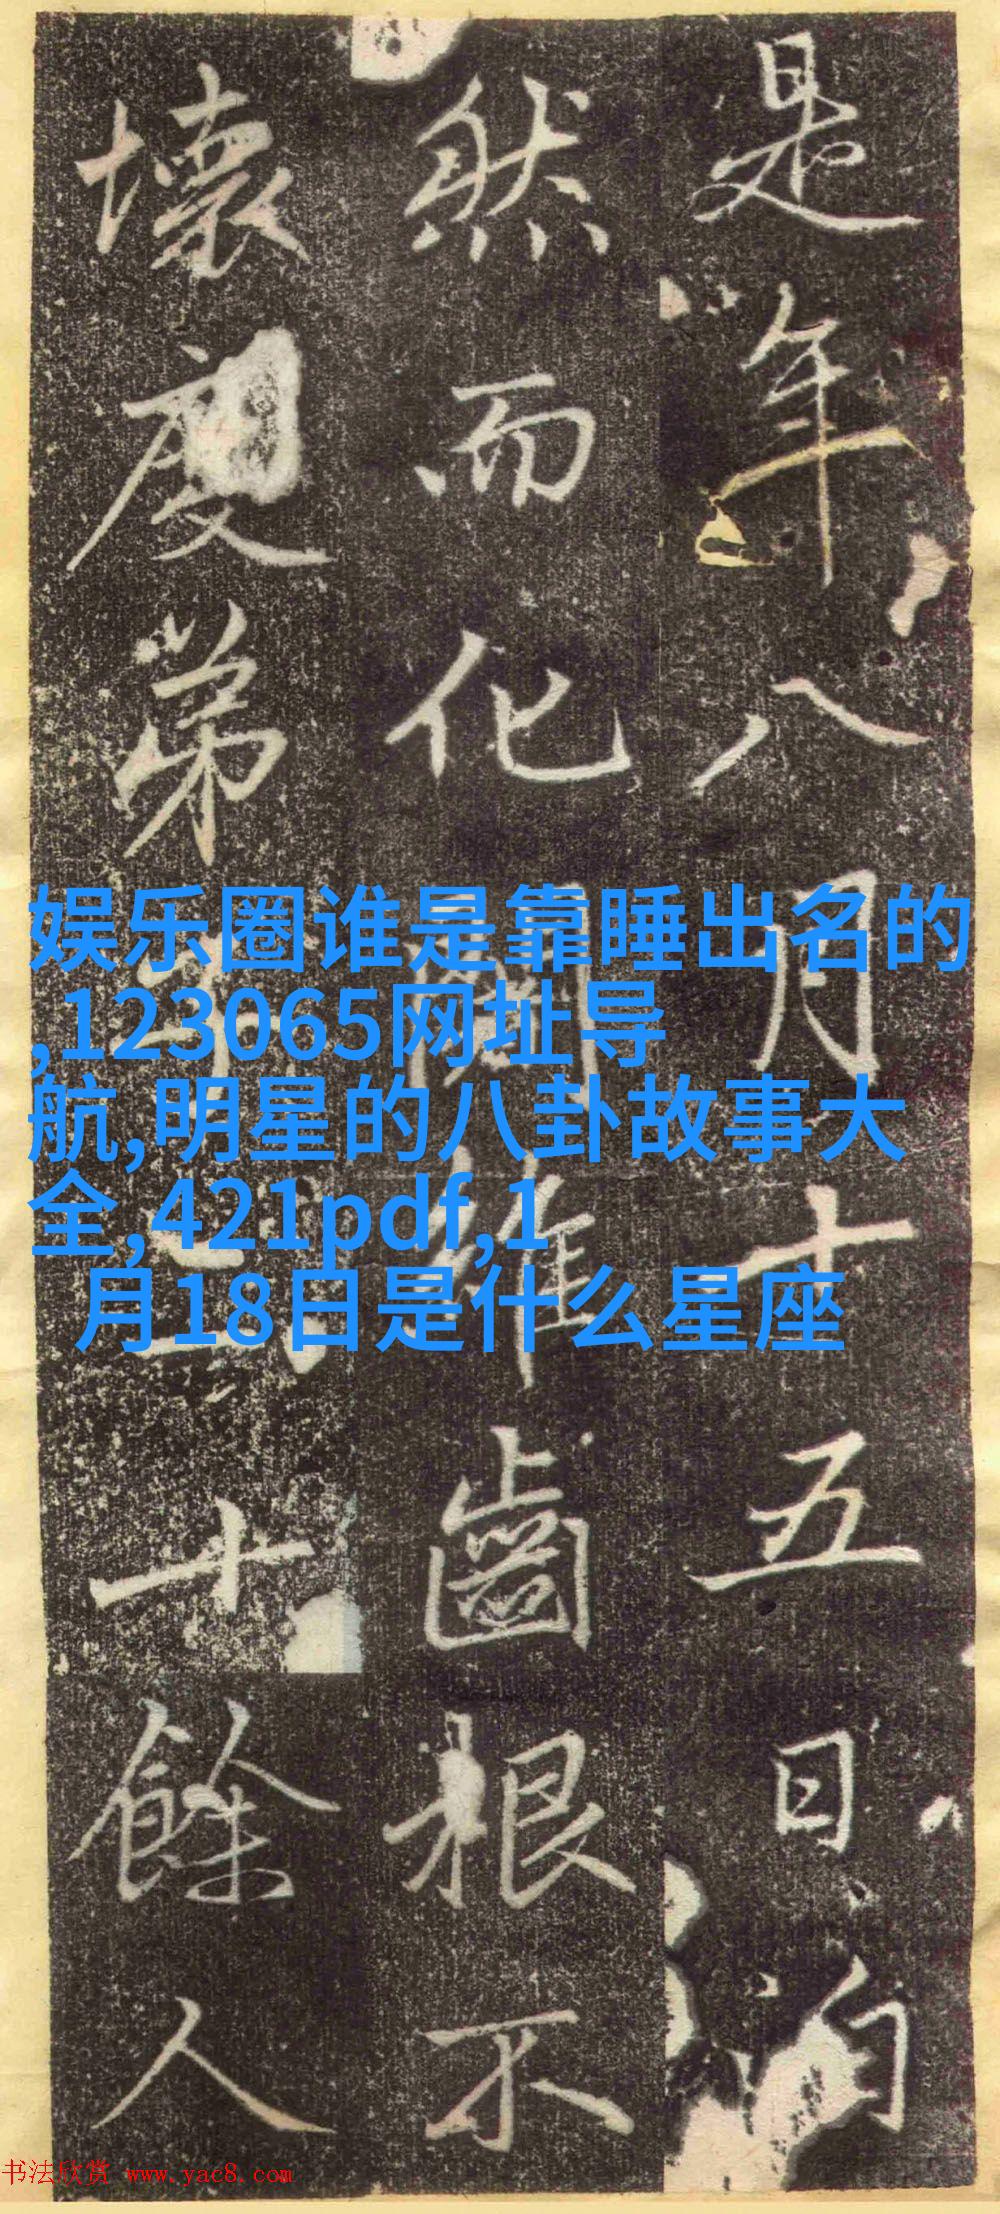 是年八月十五日自
然而化闍維齒根不
壞度弟子十餘人
娱乐圈谁是靠睡出名的
,123065网址导
航,明星的八卦故事大
全,421pdf,1
月18日是什么星座
书法欣赏 www.yac8.com